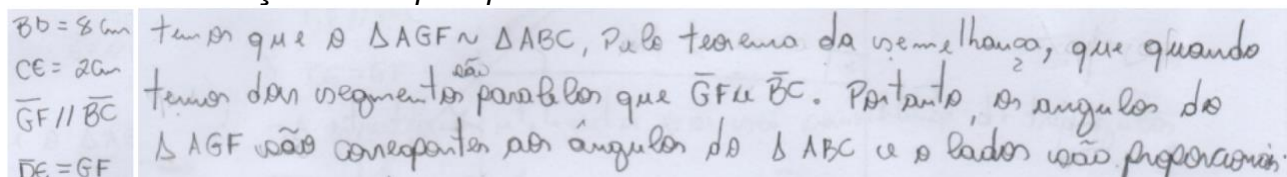 BD = 8 cm
CE = 2 cm
GF // BC
DE = GF
temos que o ΔAGF ~ ΔABC, Pelo teorema da semelhança, que quando
temos dois segmentos são paralelos que GF e BC. Portanto, os angulos do
Δ AGF são correspontes aos ângulos do Δ ABC e o lados são proporcionais.